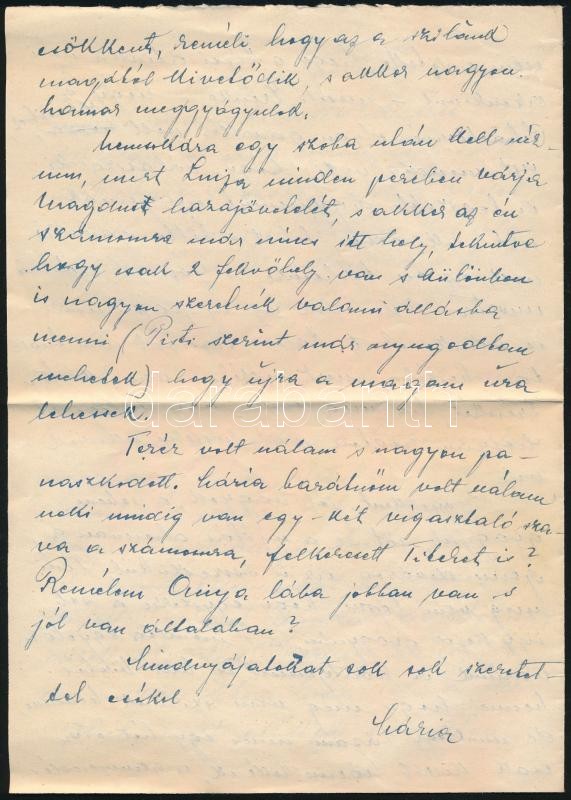 csökkent, reméli, hogy az a szilánk
magától kivetődik, s akkor nagyon
hamar meggyógyulok.
hamarosan egy szoba után kell néz-
nem, mert Luiza minden percben várja
Magdust hazajövetelét, s akkor az én
számomra már nincs itt hely, tekintve
hogy csak 2 fekvőhely van s különben
is nagyon szeretnék valami állásba
menni (Pisti szerint már nyugodtan
mehetek) hogy újra a magam ura
lehessek.
Teréz volt nálam s nagyon pa-
naszkodott. Mária barátnőm volt nálam
neki mindig van egy-két vigasztaló sza-
va a számomra, felkeresett Titeket is?
Remélem Anya lába jobban van s
jól van általában?
Mindnyájatokat sok sok szeretet-
tel csókol
Mária
darabanth